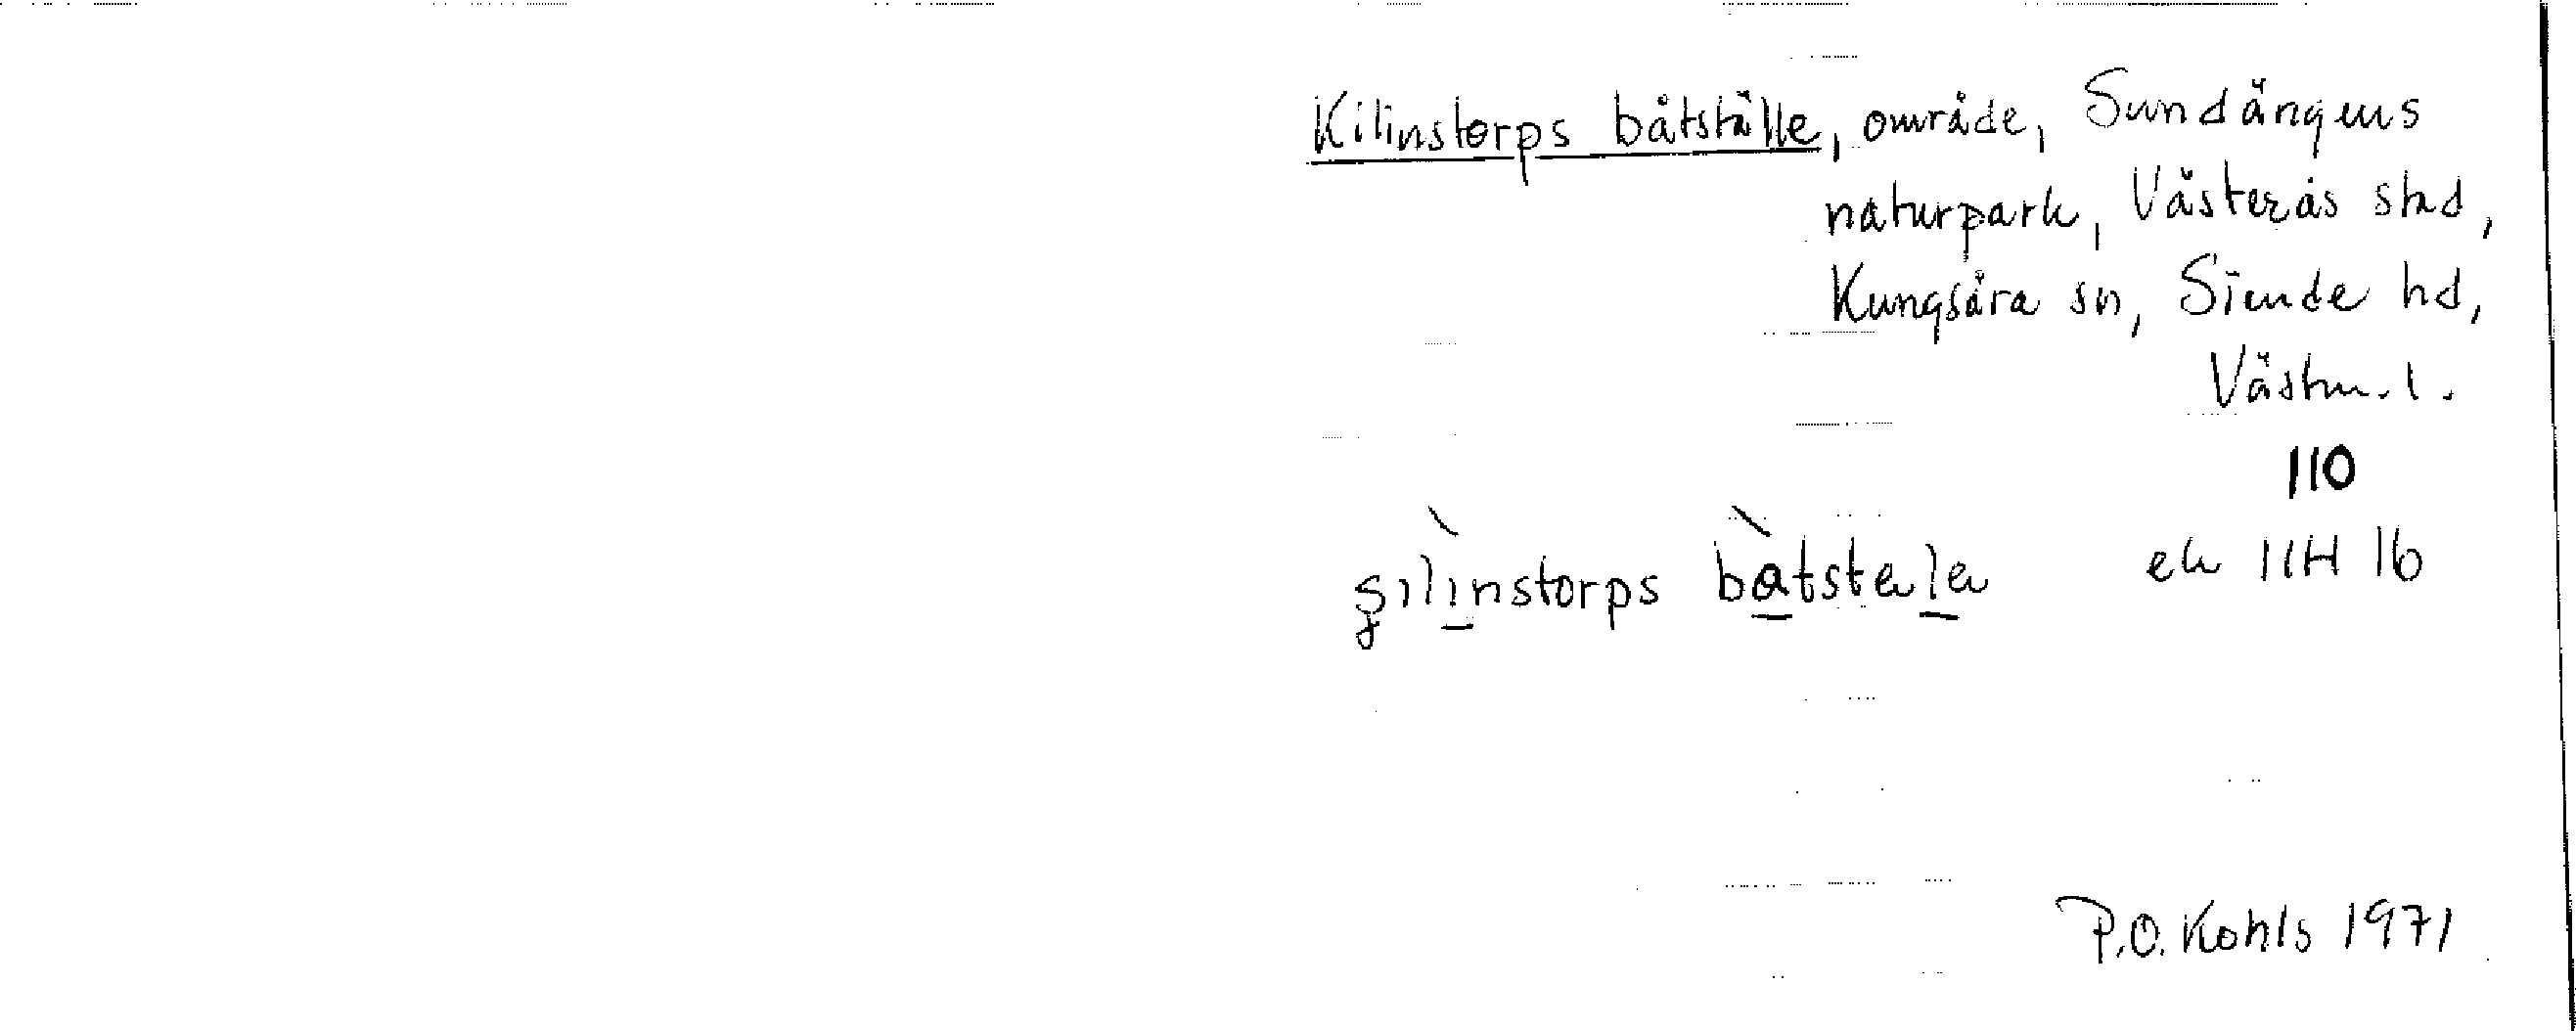 Kilinstorps båtställe, område, Sundängens
naturpark, Västerås stad,
Kungsåra sn, Siende hd,
Västm. l.
110
ek 11H 1b
båtstele
P.O. Kohls 1971